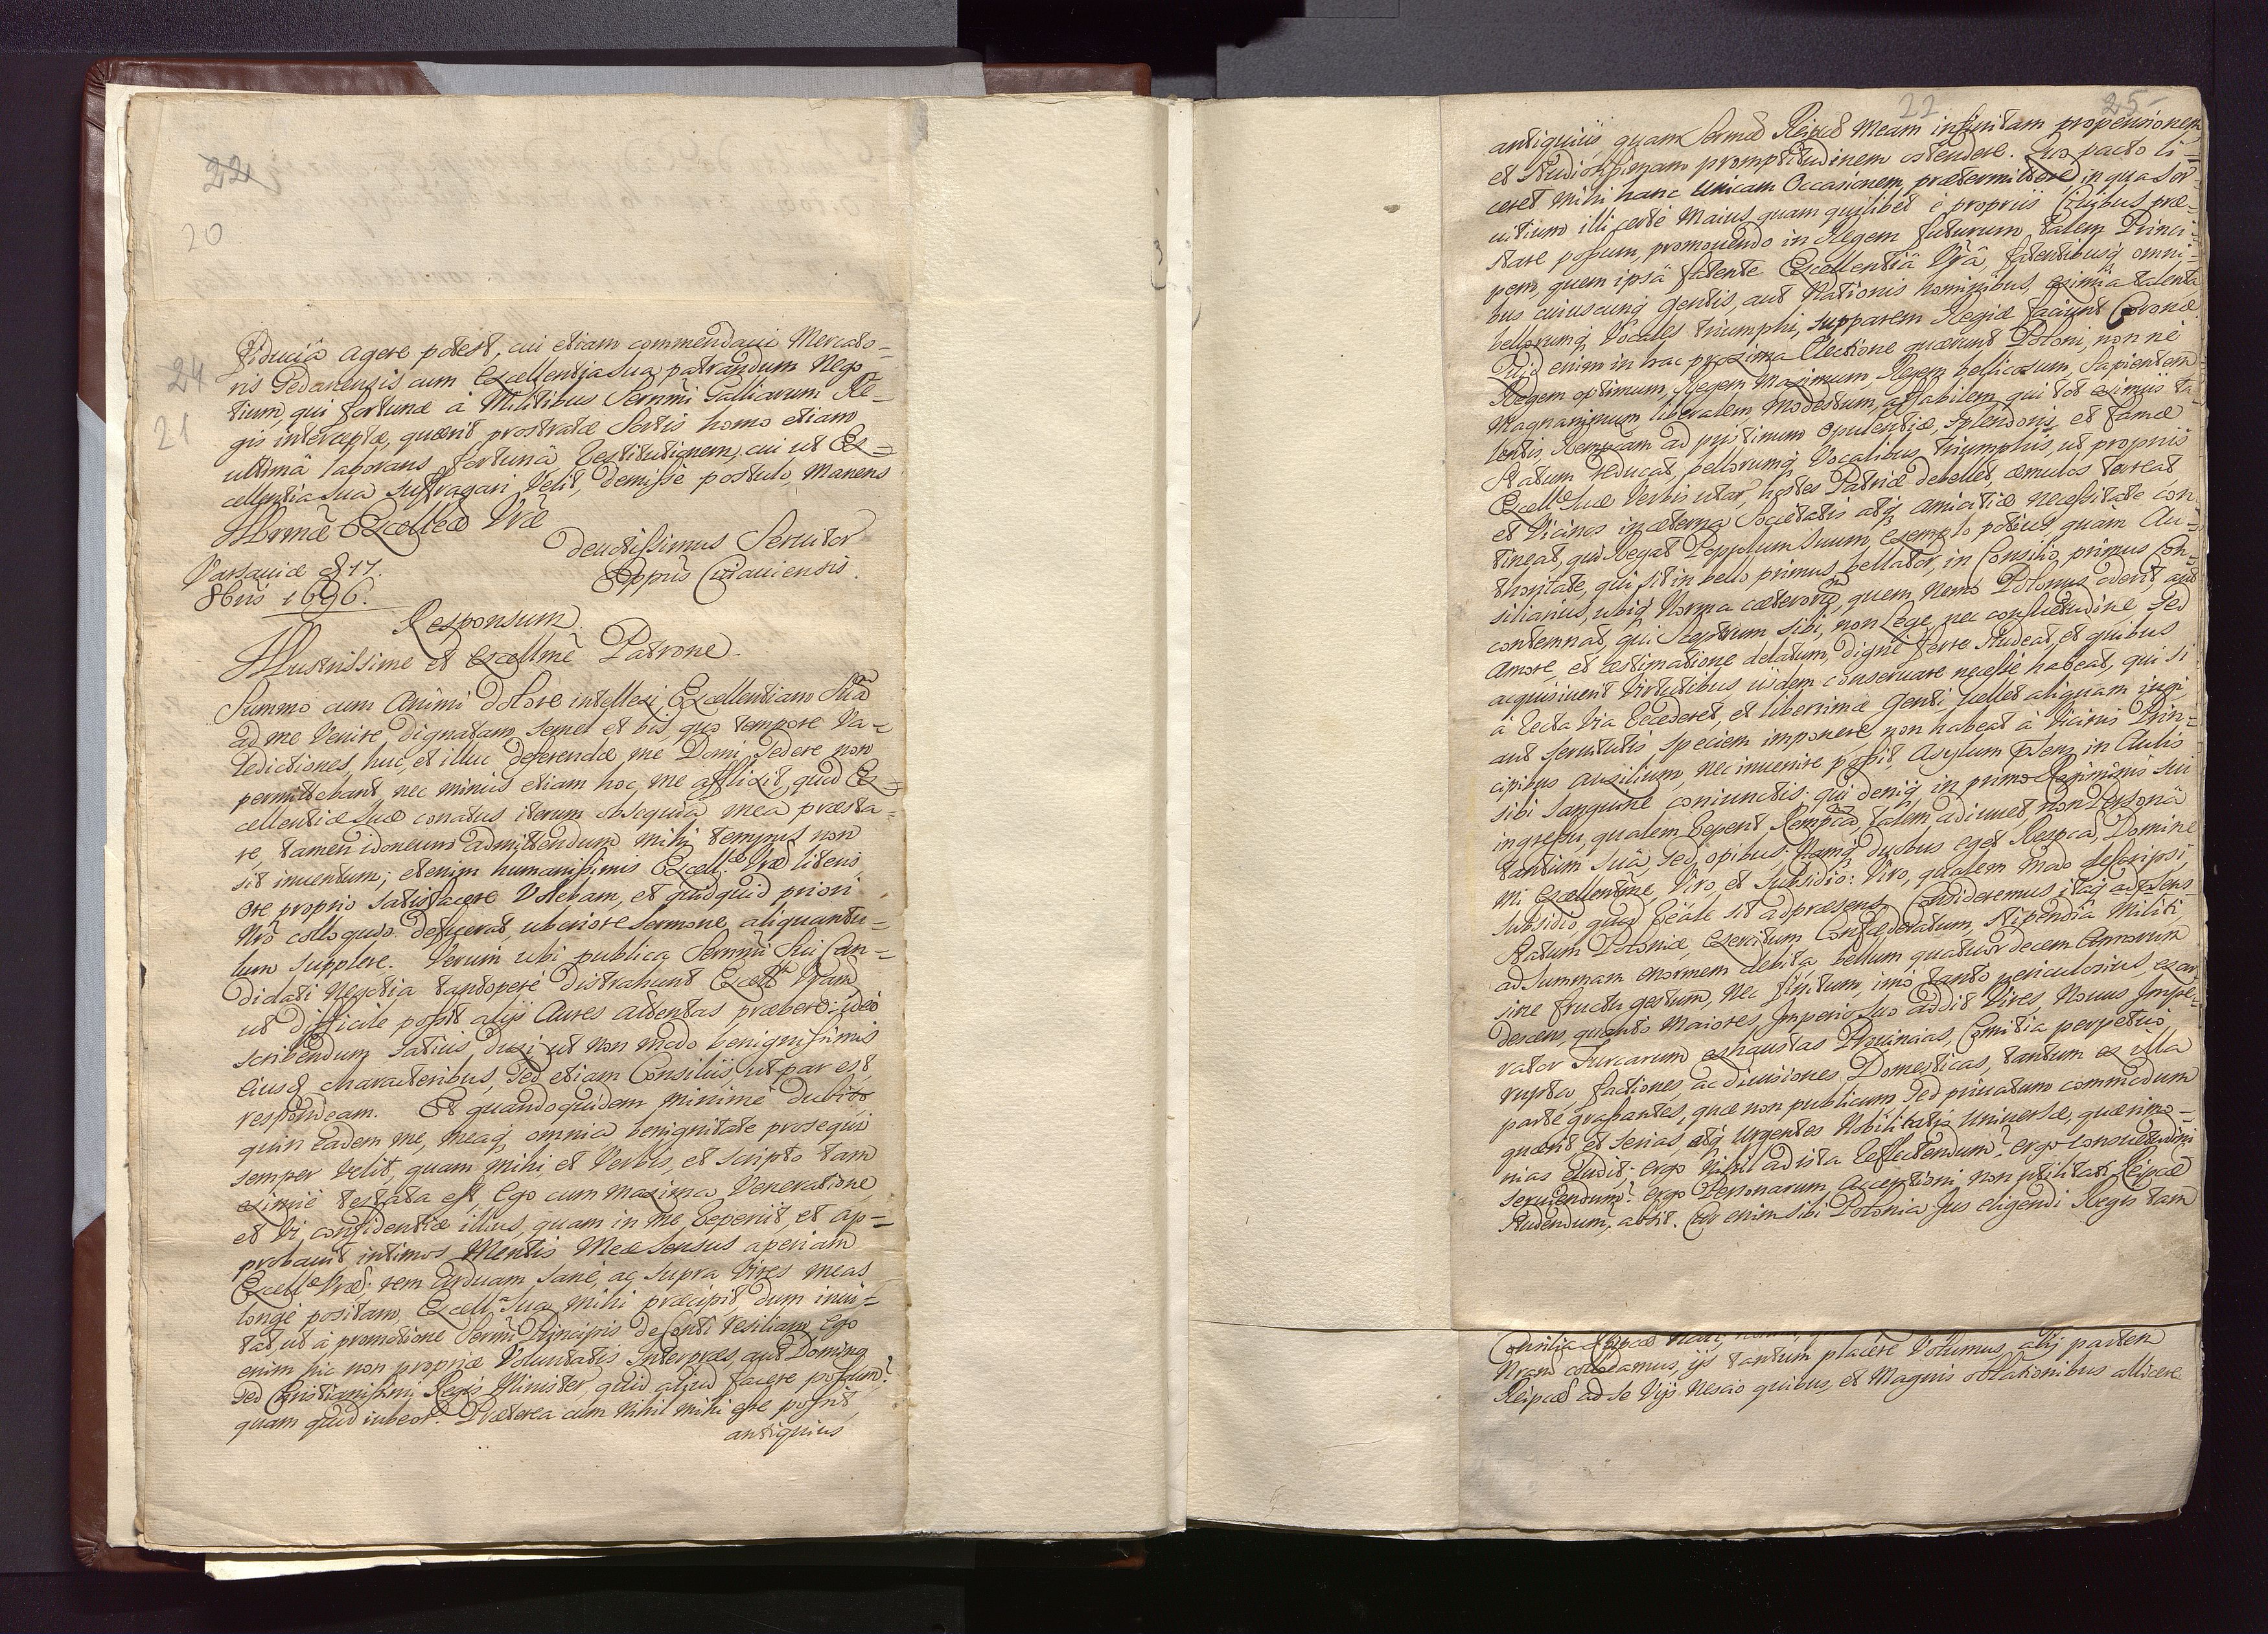 22
20
24
21
fiduciâ agere potest, cui etiam commendavi Mercato=
ris Gedanensis cum Excellentia sua patrandum Nego
tium, qui fortunæ â Militibus Sermi Galliarum Re=
gis interceptæ, quærit prostratæ Sortis homo etiam
ultimâ laborans fortunâ Restitutionem, cui ut Ex=
cellentia sua suffragari Velit, demisse postulo, Manens
Illmæ Excellæ Vræ
devotissimus Servitor
Eppus Cuiaviensis.
Varsaviæ d 17.
8bris 1696.
Responsum
Illustrissime et Excellme Patrone.
Summo cum Animi dolore intellexi Excellentiam Suã
ad me Venire dignatam, semel et bis, quo tempore Va=
ledictiones, huc, et illuc deferendæ me Domi sedere non
permittebant, nec minus etiam hoc me afflixit, quod Ex=
cellentiæ Suæ conatus iterum obsequia mea præsta=
re, tamen idoneum admittendum mihi tempus non
sit inventum; etenim humanissimis Excell: Vræ literis
ore proprio satisfacere Volebam, et quidquid priori
Nro colloquio defuerat, uberiore Sermone aliquantu=
lum supplere. Verum ubi publica Sermi Sui Can=
didati Negotia tantopere distrahunt Excellm Vram
ut difficile possit alijs Aures attentas præbere: ideo
scribendum satius duxi ut non modo benignissimis
Eiusq characteribus, sed etiam Consilijs, ut par est,
respondeam. Et quandoquidem minimè dubito
quin eadem me, meaq omnia benignitate prosequi
semper Velit, quam mihi, et Verbis, et scripto tam
eximiè testata est Ego cum maxima Veneratione
et Vi, confidentiæ illius, quam in me reperiit, et ap=
probavit intimos Mentis Meæ Sensus aperiam
Excellæ Vræ: rem arduam sanè, ac supra Vires meas
longè positam, Excella Sua mihi præcipit, dum invi=
tat, ut à promotione Sermi Principis de Conti resiliam, Ego
enim hic non propriæ Voluntatis Interpræs, aut Dominus
sed Christianissimi Regis Minister, quid aliud facere possum?
quam quod iubeor. Præterea cum Nihil mihi esse possit
antiquius
22
25
antiquius, quam Sermæ Reipcæ Meam infinitam propensionem,
et studiosissimam promptitudinem ostendere. Quo pacto li=
ceret mihi hanc Unicam Occasionem prætermittere, in qua Ser
vitium illi certè Maius, quam quilibet è propriis Civibus præ=
stare possum, promovendo in Regem futurum, talem Princi=
pem, quem ipsâ fatente Excellentiâ Vrâ, fatentibusq omni=
bus cuiuscunq Gentis, aut Nationis hominibus, eximia talenta
bellorumq Vocales triumphi, supparem Regiæ faciunt Coronæ.
Quid enim in hac proxima Electione quærunt Poloni, non nè
Regem optimum, Regem Maximum, Regem bellicosum, Sapientem
Magnanimum, liberalem, Modestum, affabilem, qui tot eximiis ta
lentis, Rempcam ad pristinum opulentiæ, Splendoris, et famæ
Statum reducat, bellorumq Vocalibus triumphis, ut propriis
Excell Suæ Verbis utar, hostes Patriæ debellet, æmulos terreat,
et Vicinos in æterna Societatis atq amicitiæ necessitate con
tineat, qui regat Populum suum, exemplo potius quàm Au=
thoritate, qui sit in bello primus bellator, in Consilio primus Con=
siliarius, ubiq Norma cæterorum, quem Nemo Polonus oderit, aut
contemnat, qui Sceptrum sibi, non Lege, nec consuetudine, sed
Amore, et æstimatione delatum, dignè ferre studeat, et quibus
acquisiverit Virtutibus iisdem conservare necesse habeat, qui si
à recta Via recederet, et liberrimæ Genti, vellet aliquam iugi,
aut servitutis speciem imponere, non habeat à Vicinis Prin=
cipibus auxilium, nec invenire possit, Asylum præsens in Aulis
sibi Sanguine coniunctis: qui deniq in primo Regiminis sui
ingressu, qualem reperit Rempcã, talem adiuvet, non Personâ
tantum suâ, sed opibus; Namq duobus eget Respca, Domine
mi Excellentme, Viro, et Subsidio: Viro, qualem modo descripsi,
subsidio quod reale sit ad præsens. Consideremus itaq ad præsens
Statum Poloniæ, Exercitum Confœderatum, stipendia Militi,
ad Summam enormem debita, bellum quatuordecem Annorum
sine fructu gestum, nec finitum, imò tanto periculosius, exar
descens, quanto Maiores, Imperio suo addit Vires, Novus Impe=
rator Turcarum, exhaustas Provincias, Comitia perpetuò
rupta, factiones, ac divisiones Domesticas, tantum ex illa
parte grassantes, quæ non publicum, sed privatum commodum
quærit, et serias, atq Urgentes Nobilitatis Universæ, quærimo=
nias eludit: ergo Nihil ad ista reflectendum? ergo consuetudini
serviendum? ergo Personarum acceptioni, non utilitati Reipcæ
studendum? absit. Cur enim sibi Polonia Jus eligendi Regis tam
Consilia Reipcæ
Nram collodamus, ijs tantum placere Volumus, alij partem
Reipcæ ad se Vijs nescio quibus, et Magnis oblationibus allicere